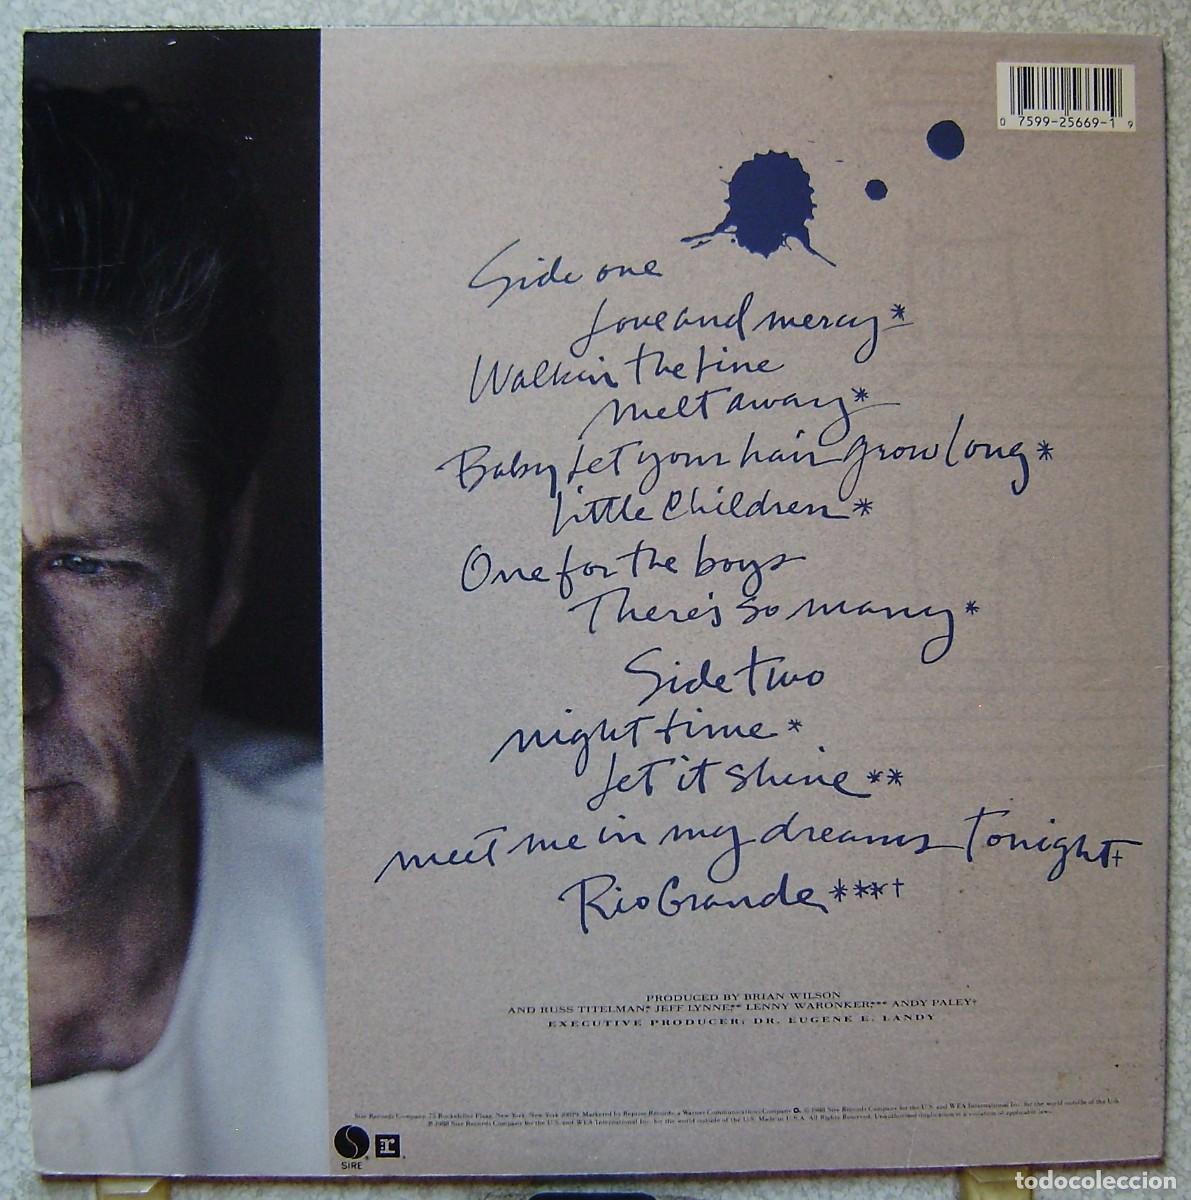 0 7599-25669-1 9
Side one
Love and mercy*
Walkin the line
melt away*
Baby Let your hair grow long*
Little Children*
One for the boys
There's so many*
Side two
night time*
Let it shine**
meet me in my dreams Tonight†
Rio Grande***†
PRODUCED BY BRIAN WILSON
AND RUSS TITELMAN,* JEFF LYNNE,** LENNY WARONKER,*** ANDY PALEY†
EXECUTIVE PRODUCER: DR. EUGENE E. LANDY
Sire Records Company, 75 Rockefeller Plaza, New York, New York 10019. Marketed by Reprise Records, a Warner Communications Company. © 1988 Sire Records Company for the U.S. and WEA International Inc. for the world outside of the U.S.
℗ 1988 Sire Records Company for the U.S. and WEA International Inc. for the world outside of the U.S. Made in U.S.A. All Rights Reserved. Unauthorized duplication is a violation of applicable laws.
SIRE r
todocoleccion